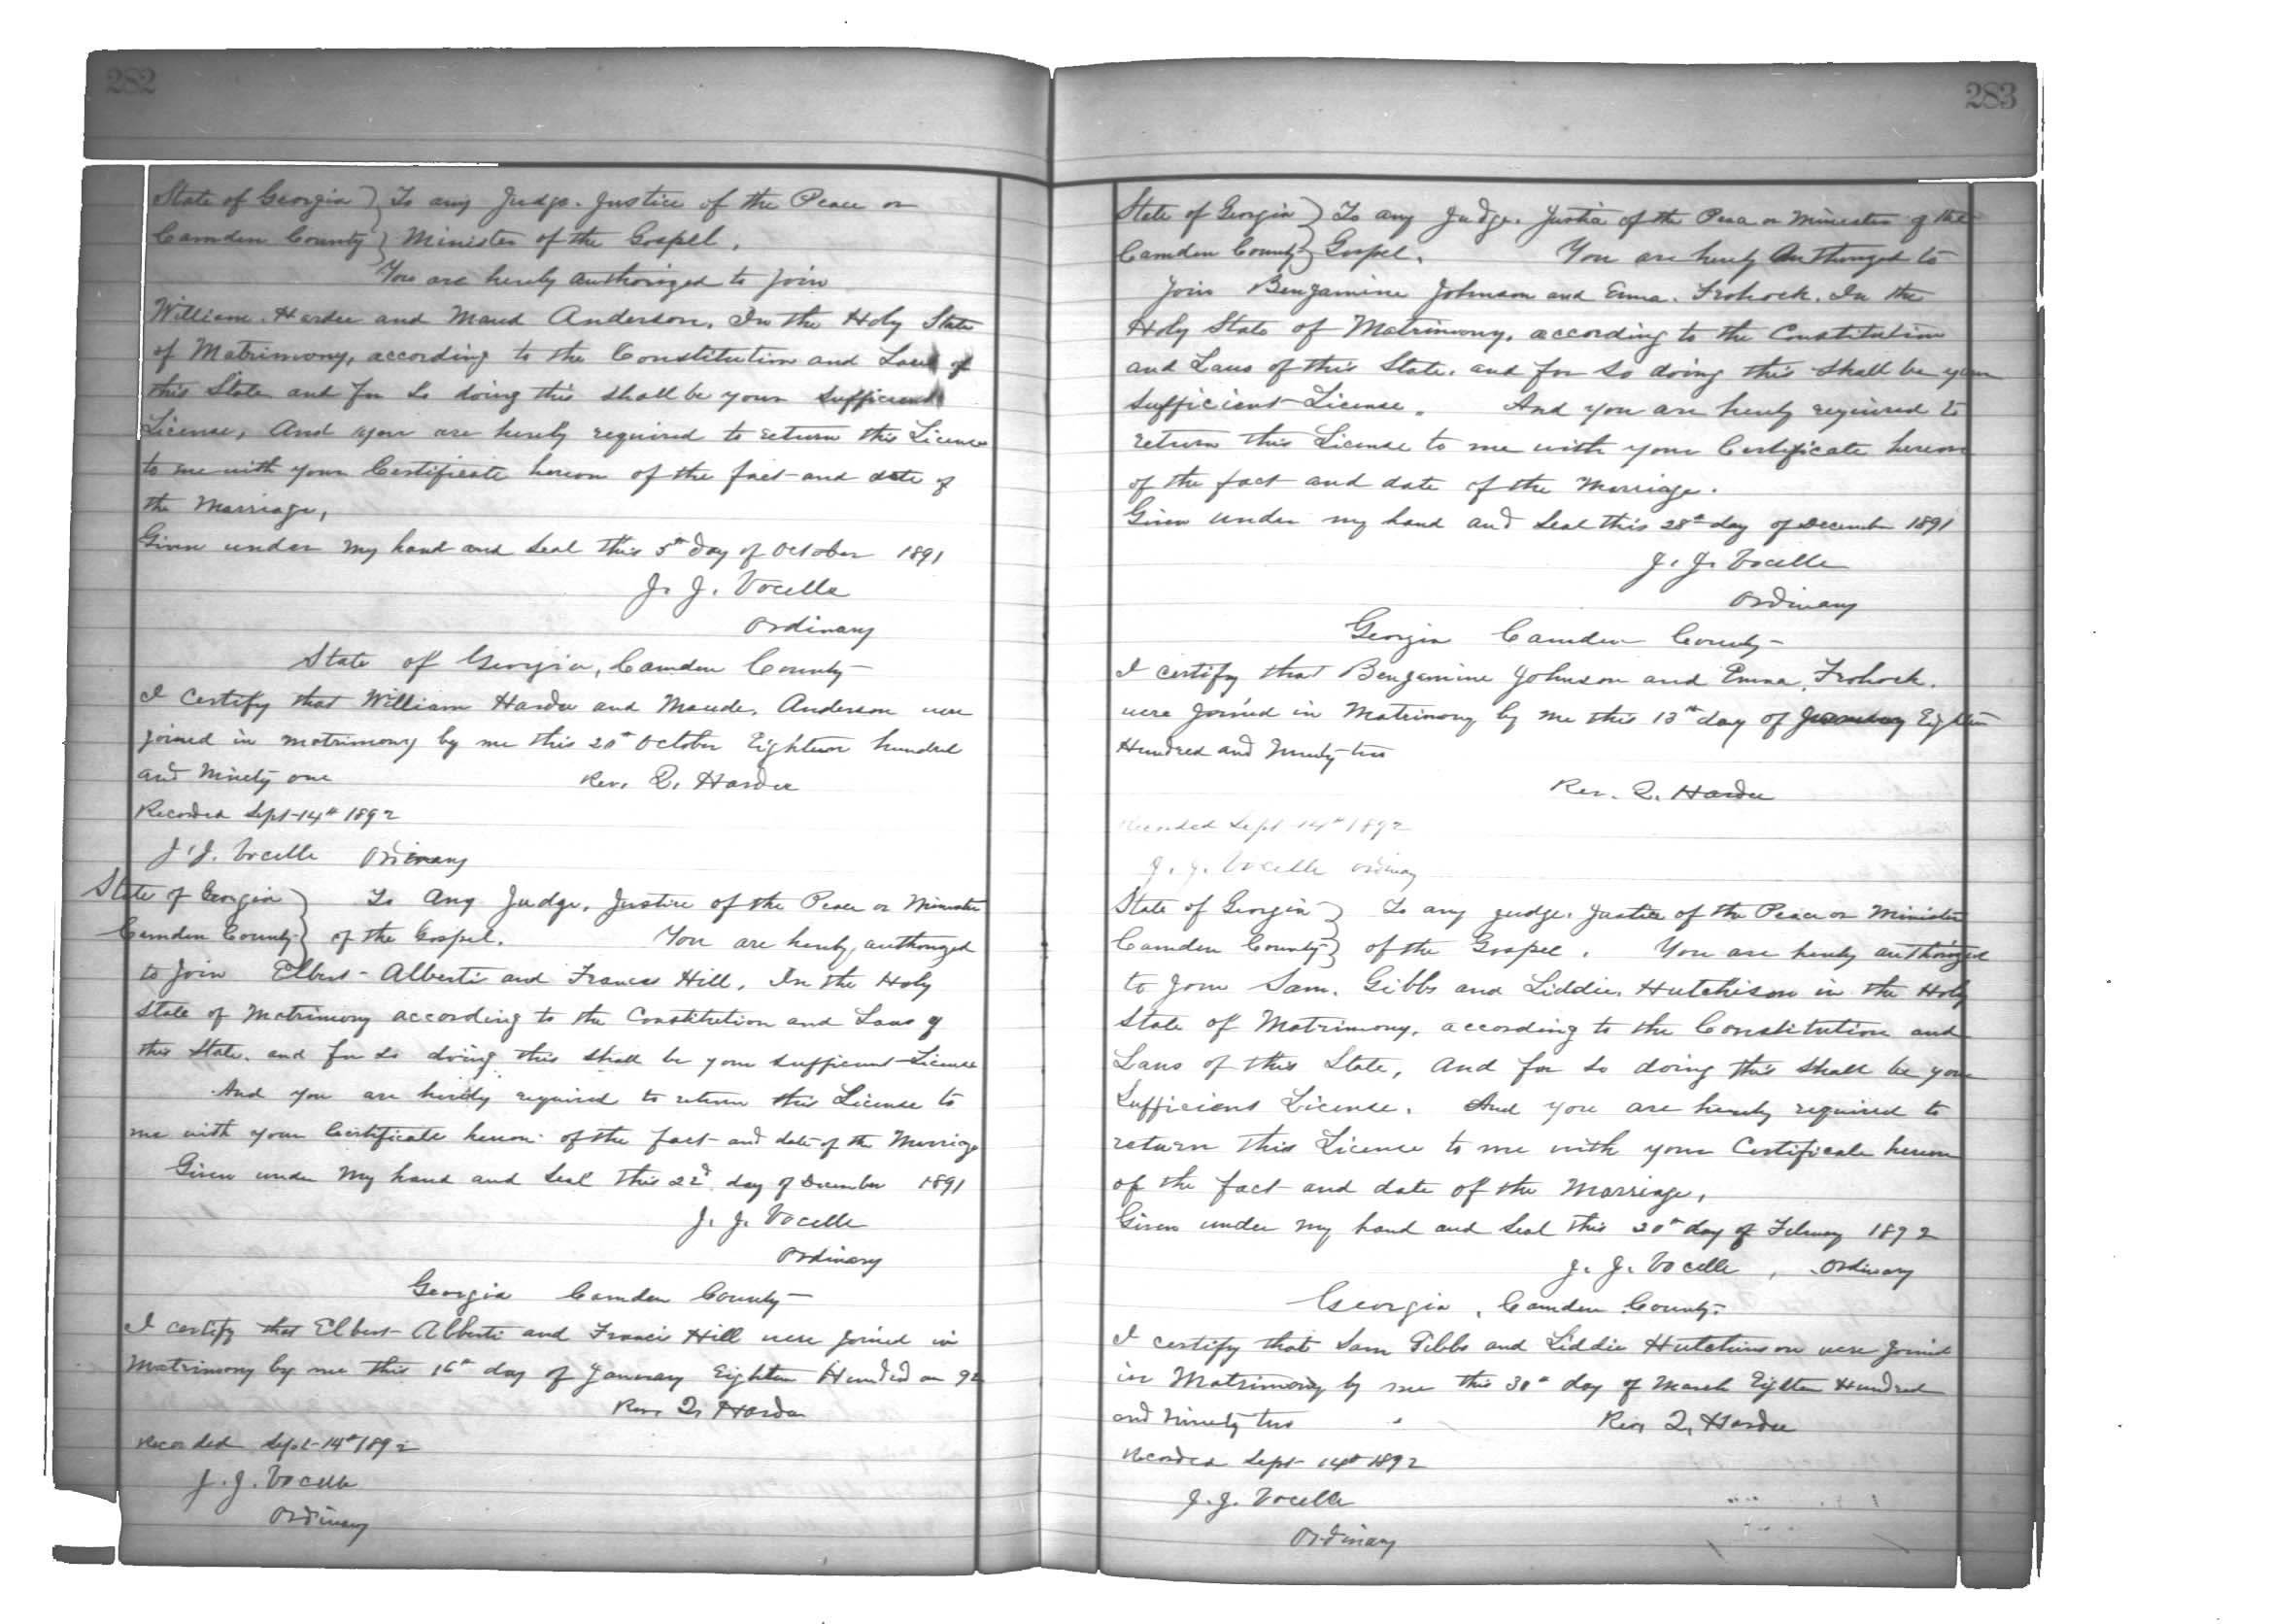 282
State of Georgia } To any Judge. Justice of the Peace or
Camden County } Minister of the Gospel.
You are hereby authorized to join
William. Hardee and Maud Anderson. In the Holy State
of Matrimony, according to the Constitution and Laws of
this State and for so doing this shall be your sufficient
License, And you are hereby required to return this License
to me with your Certificate hereon of the fact and date of
the Marriage,
Given under my hand and seal this 5th day of October 1891
J. J. Vocelle
Ordinary
State of Georgia, Camden County
I certify that William Hardee and Maude. Anderson were
joined in matrimony by me this 20th October Eighteen hundred
and Ninety one Rev. Q. Hardee
Recorded Sept 14th 1892
J. J. Vocelle Ordinary
State of Georgia } To Any Judge, Justice of the Peace or Minister
Camden County } of the Gospel. You are hereby authorized
to join Elbert Alberti and Frances Hill. In the Holy
State of Matrimony according to the Constitution and Laws of
this State. and for so doing this shall be your sufficient License
And you are hereby required to return this License to
me with your Certificate hereon of the fact and date of the Marriage
Given under my hand and seal this 22d day of December 1891
J. J. Vocelle
Ordinary
Georgia Camden County
I certify that Elbert Alberti and Francis Hill were joined in
Matrimony by me this 16th day of January Eighteen Hundred an 92
Rev. Q. Hardee
Recorded Sept 14th 1892
J. J. Vocelle
Ordinary
283
State of Georgia } To any Judge. Justice of the Peace or Minister of the
Camden County } Gospel. You are hereby Authorized to
Join Bengamine Johnson and Emma. Frohock. In the
Holy State of Matrimony, according to the Constitution
and Laws of this State. and for so doing this shall be your
sufficient License. And you are hereby required to
return this License to me with your Certificate hereon
of the fact and date of the Marriage.
Given under my hand and seal this 28th day of December 1891
J. J. Vocelle
Ordinary
Georgia Camden County
I certify that Bengamine Johnson and Emma. Frohock.
were joined in Matrimony by me this 13th day of January Eighteen
Hundred and Ninety two
Rev. Q. Hardee
Recorded Sept 14th 1892
J. J. Vocelle Ordinary
State of Georgia } To any judge. Justice of the Peace or Minister
Camden County } of the Gospel. You are hereby authorized
to join Sam. Gibbs and Liddie. Hutchison in the Holy
State of Matrimony, according to the Constitution and
Laws of this State, and for so doing this shall be your
Sufficient License. And you are hereby required to
return this License to me with your Certificate hereon
of the fact and date of the Marriage,
Given under my hand and seal this 20th day of February 1892
J. J. Vocelle, Ordinary
Georgia, Camden County.
I certify that Sam Gibbs and Liddie Hutchinson were joined
in Matrimony by me this 30th day of March Eighteen Hundred
and Ninety two Rev. Q. Hardee
Recorded Sept 14th 1892
J. J. Vocelle
Ordinary